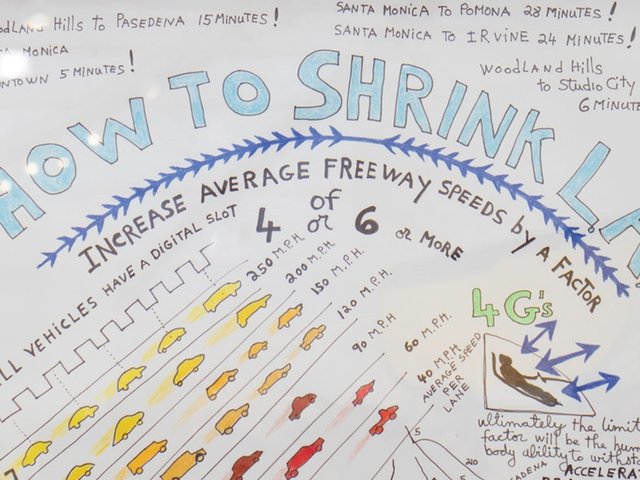 WOODLAND HILLS to PASEDENA 15 MINUTES!
MONICA
5 MINUTES!
SANTA MONICA to POMONA 28 MINUTES!
SANTA MONICA to IRVINE 24 MINUTES!
WOODLAND HILLS
to STUDIO CITY
6 MINUTE
HOW TO SHRINK LA
INCREASE AVERAGE FREEWAY SPEEDS by A FACTOR
of
4 or 6 or MORE
LL VEHICLES HAVE A DIGITAL SLOT
250 M.P.H.
200 M.P.H.
150 M.P.H.
120 M.P.H.
90 M.P.H
60 M.P.H.
40 M.P.H.
AVERAGE SPEED
PER
LANE
4 G's
ultimately the limit
factor will be the hum
body ability to withst
ACCELERA